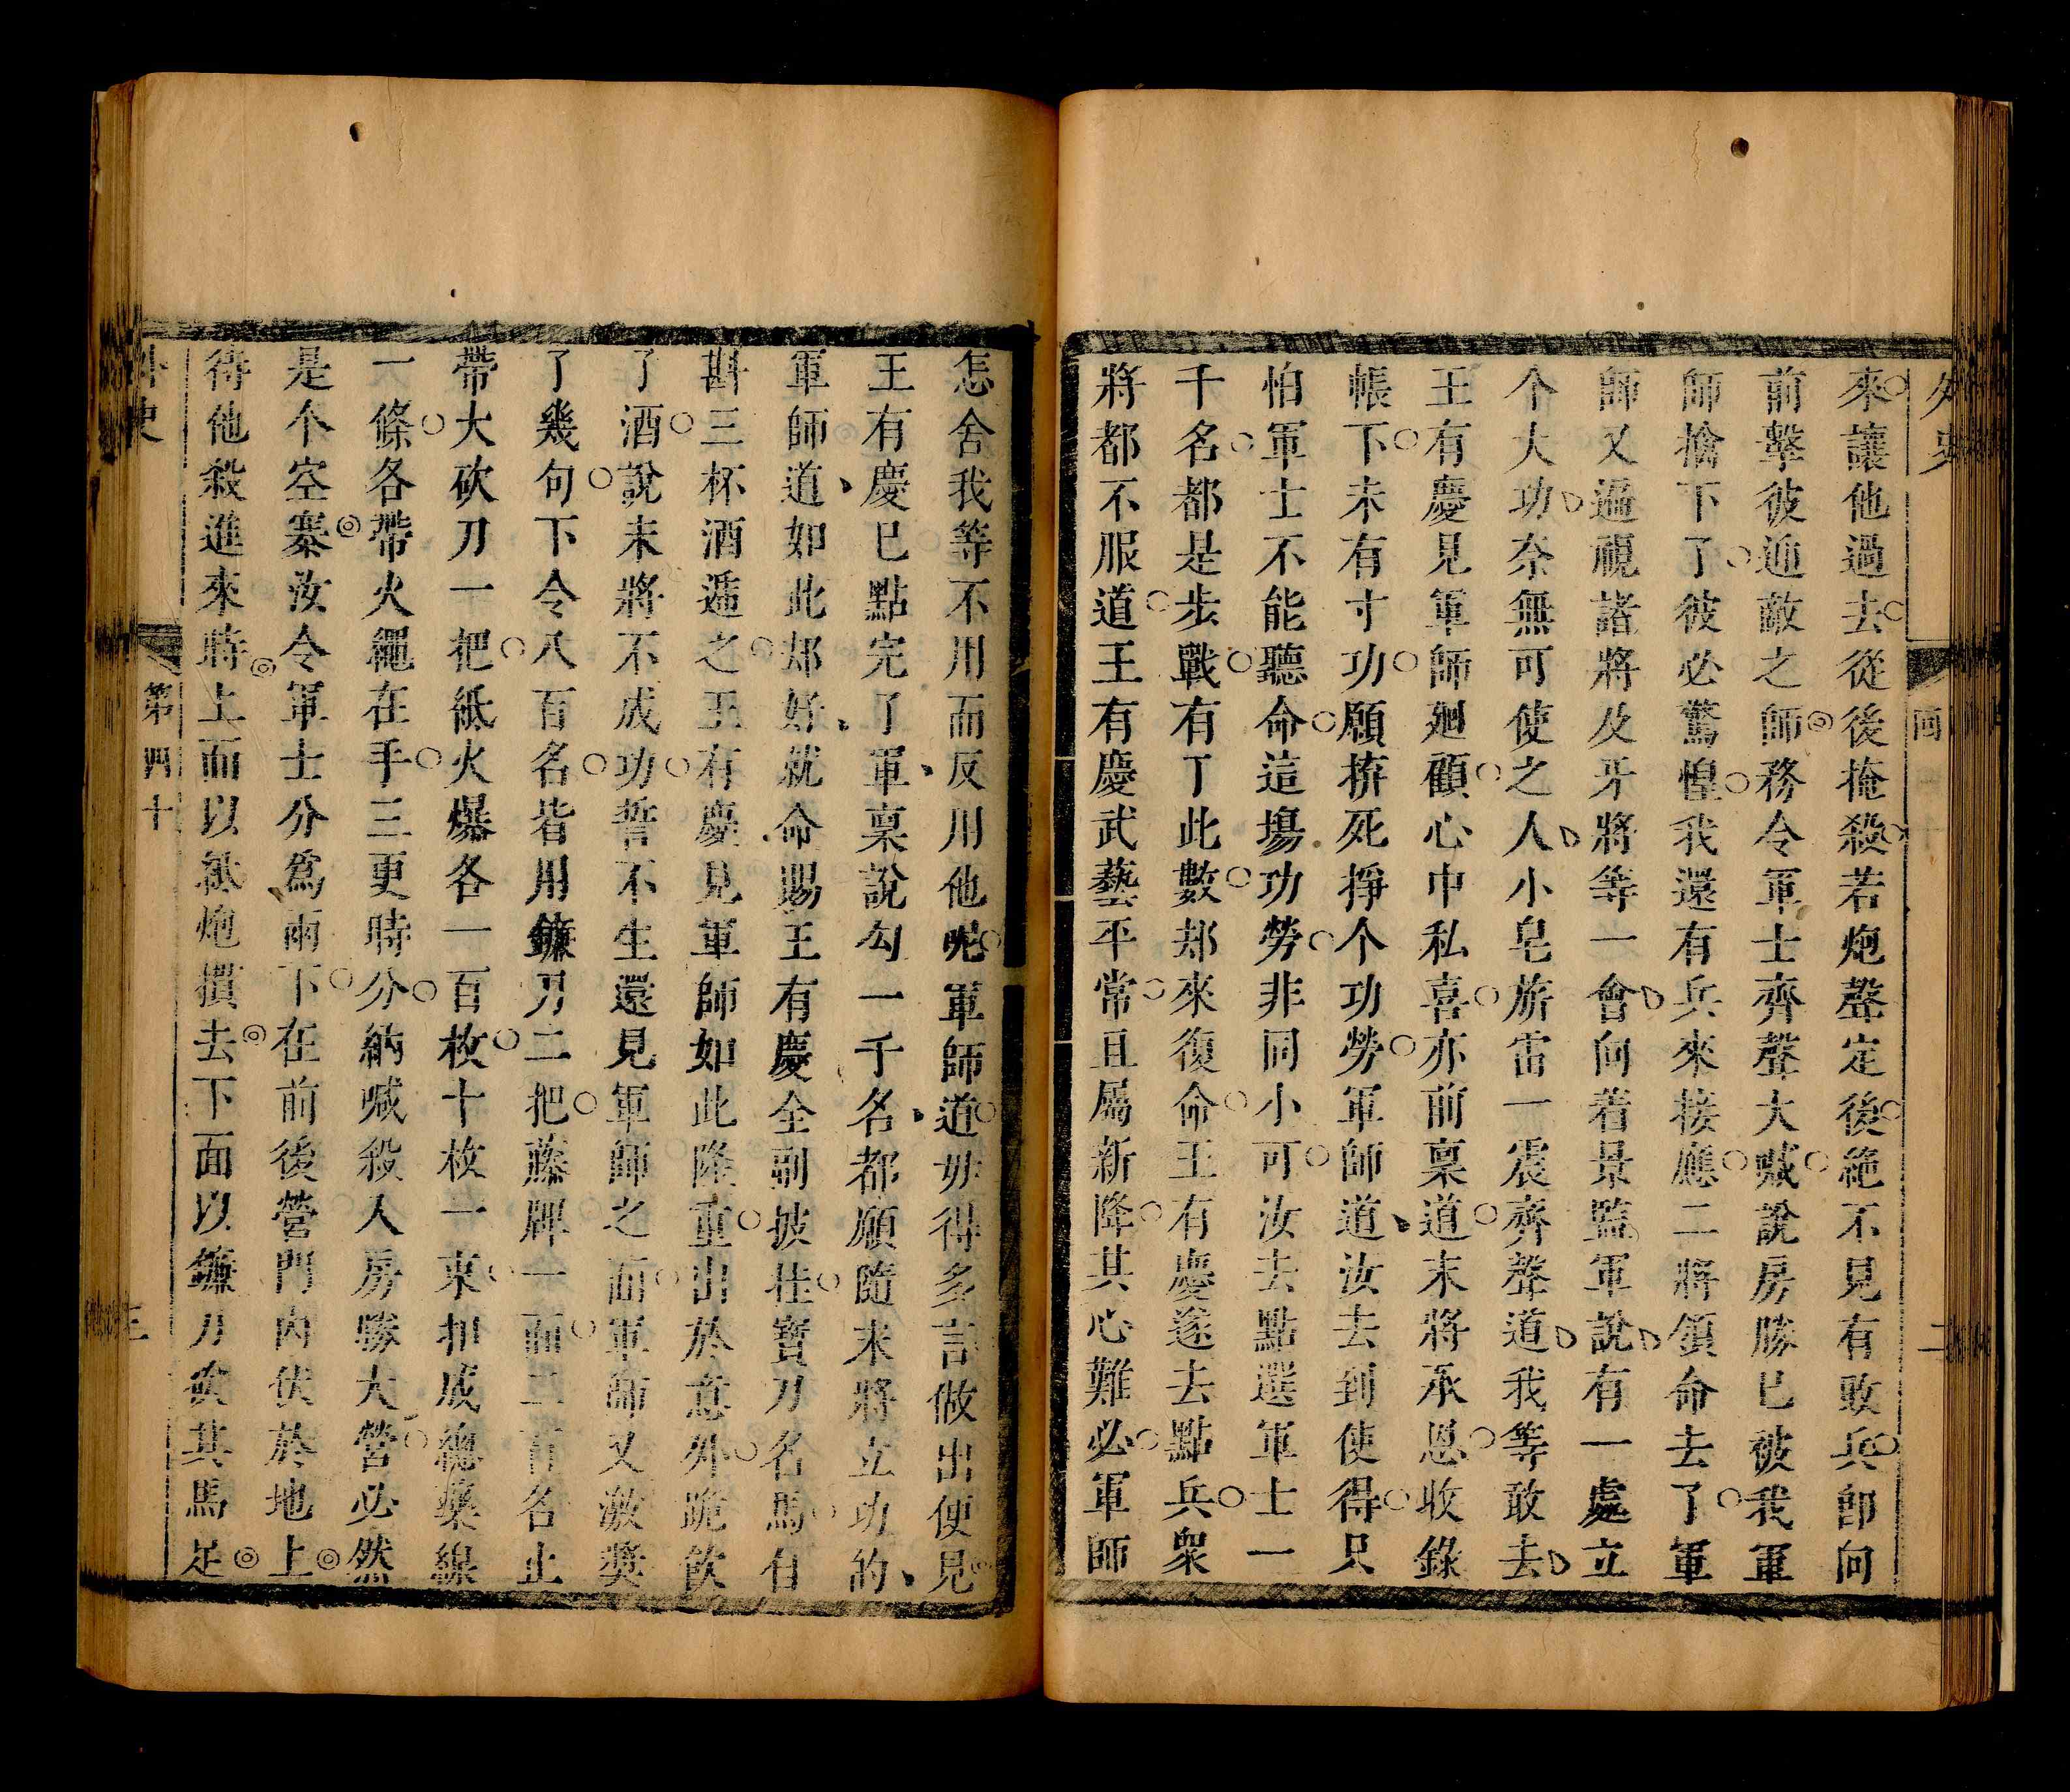 外史
回
二
來讓他過去從後掩殺若炮聲定後絶不見有敗兵卽向
前擊彼迎敵之師務令軍士齊聲大喊說房勝已被我軍
師擒下了彼必驚惶我還有兵來接應二將領命去了軍
師又遍視諸將及牙將等一會向着景監軍說有一處立
个大功奈無可使之人小皂旂雷一震齊聲道我等敢去
王有慶見軍師廻顧心中私喜亦前稟道末將承恩收錄
帳下未有寸功願拚死掙个功勞軍師道汝去到使得只
怕軍士不能聽命這塲功勞非同小可汝去點選軍士一
千名都是步戰有了此數却來復命王有慶遂去點兵衆
將都不服道王有慶武藝平常且屬新降其心難必軍師
怎舍我等不用而反用他呢軍師道毋得多言做出便見
王有慶已點完了軍稟說勾一千名都願隨末將立功的
軍師道如此却好就命賜王有慶全副披挂寶刀名馬自
斟三杯酒遞之王有慶見軍師如此隆重出於意外跪飲
了酒說末將不成功誓不生還見軍師之面軍師又激獎
了幾句下令八百名皆用鐮刀二把藤牌一面二百名止
帶大砍刀一把紙火爆各一百枚十枚一束扣成總藥線
一條各帶火繩在手三更時分納喊殺入房勝大營必然
是个空寨汝令軍士分爲兩下在前後營門內伏於地上
待他殺進來時上面以紙炮摜去下面以鐮刀砍其馬足
外史
第四十
三